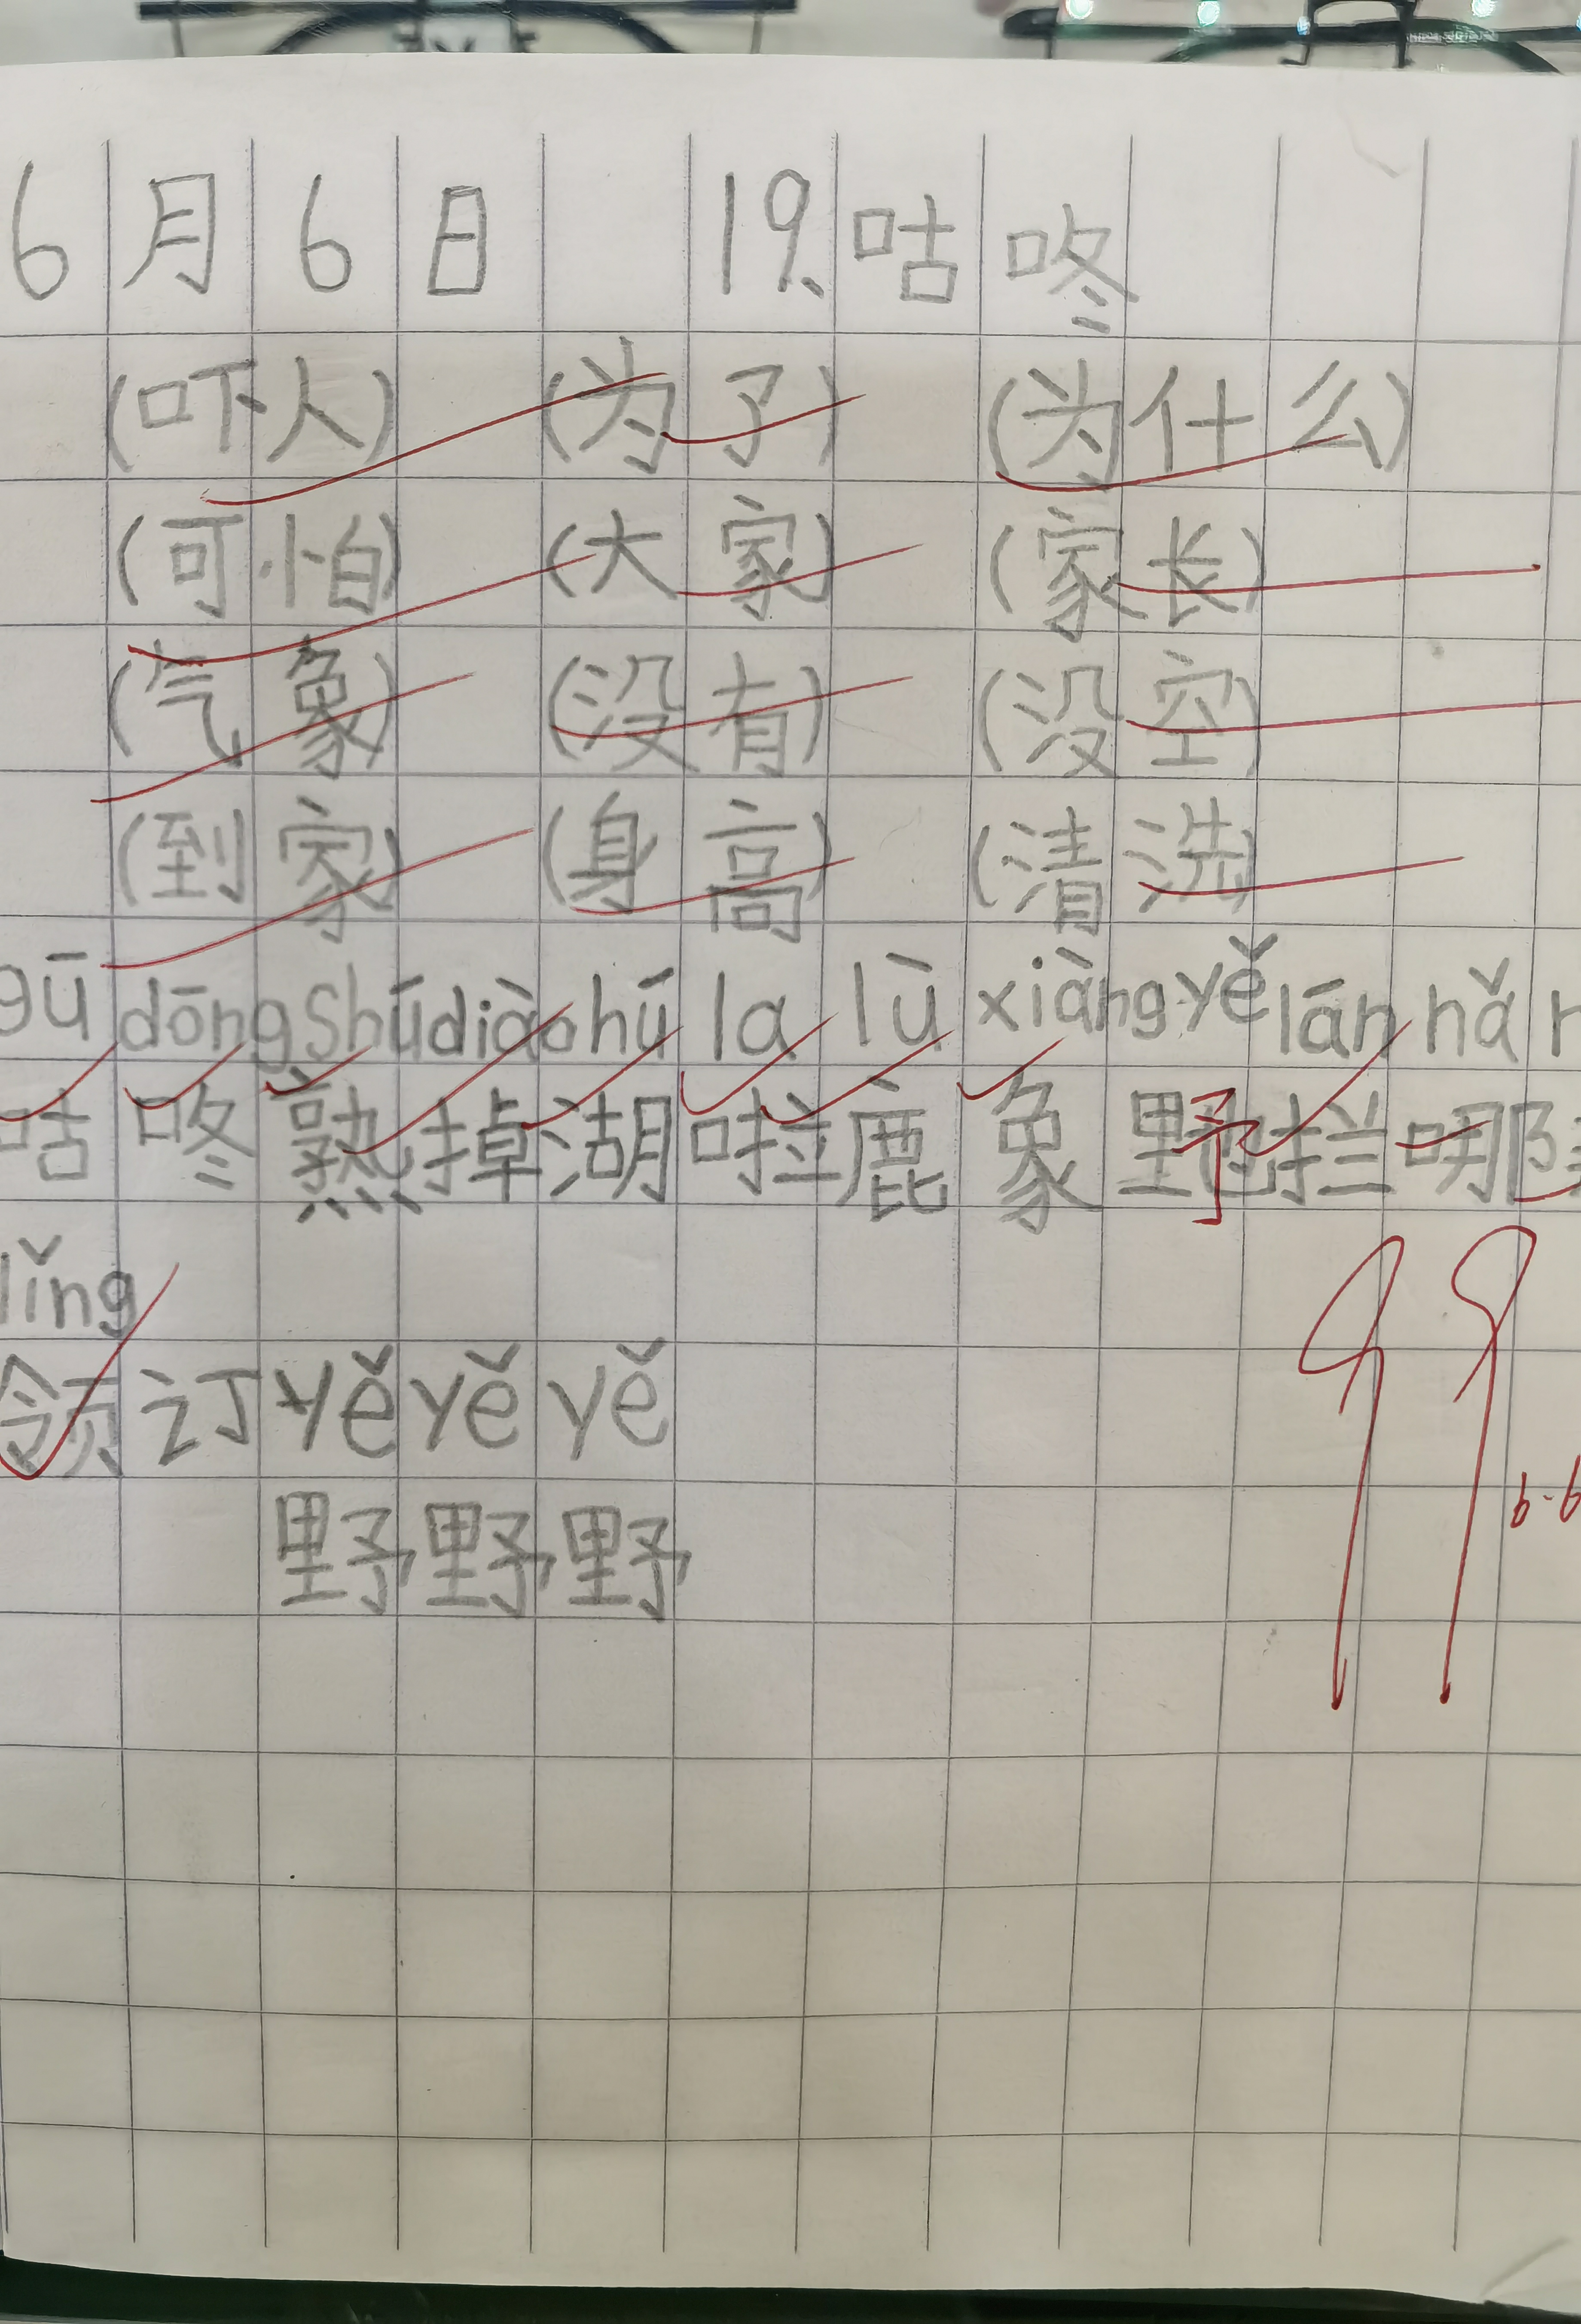 6月6日 19.咕咚
(吓人) (为了) (为什么)
(可怕) (大家) (家长)
(气象) (没有) (没空)
(到家) (身高) (清洗)
gū dōng shú diào hú la lù xiàng yě lán nǎ
咕咚熟掉湖啦鹿象野拦哪
lǐng
领订 yě yě yě
野野野
99
6.6